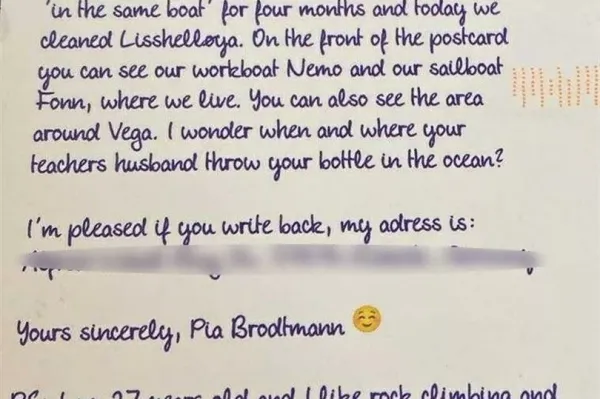 'in the same boat' for four months and today we
cleaned Lisshelløya. On the front of the postcard
you can see our workboat Nemo and our sailboat
Fonn, where we live. You can also see the area
around Vega. I wonder when and where your
teachers husband throw your bottle in the ocean?
I'm pleased if you write back, my adress is:
Yours sincerely, Pia Brodtmann
27 years old and I like rock climbing and